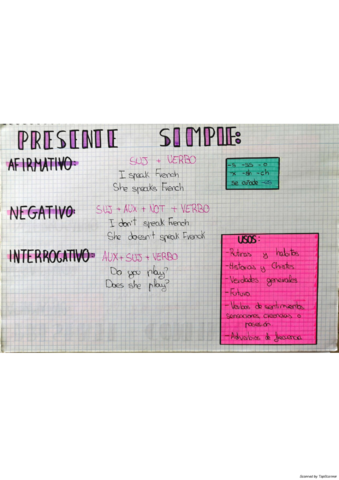 PRESENTE SIMPLE:
AFIRMATIVO:
SUJ + VERBO
I speak French
She speaks French
-s -ss -o
-x -sh -ch
se añade -es
NEGATIVO
SUJ + AUX + NOT + VERBO
I don't speak French
She doesn't speak French
INTERROGATIVO:
AUX + SUJ + VERBO
Do you play?
Does she play?
USOS:
- Rutinas y hábitos
- Historias y Chistes
- Verdades generales
- Futuro
- Verbos de sentimientos,
sensaciones, creencias o
posesión.
- Adverbios de frecuencia
Scanned by TapScanner